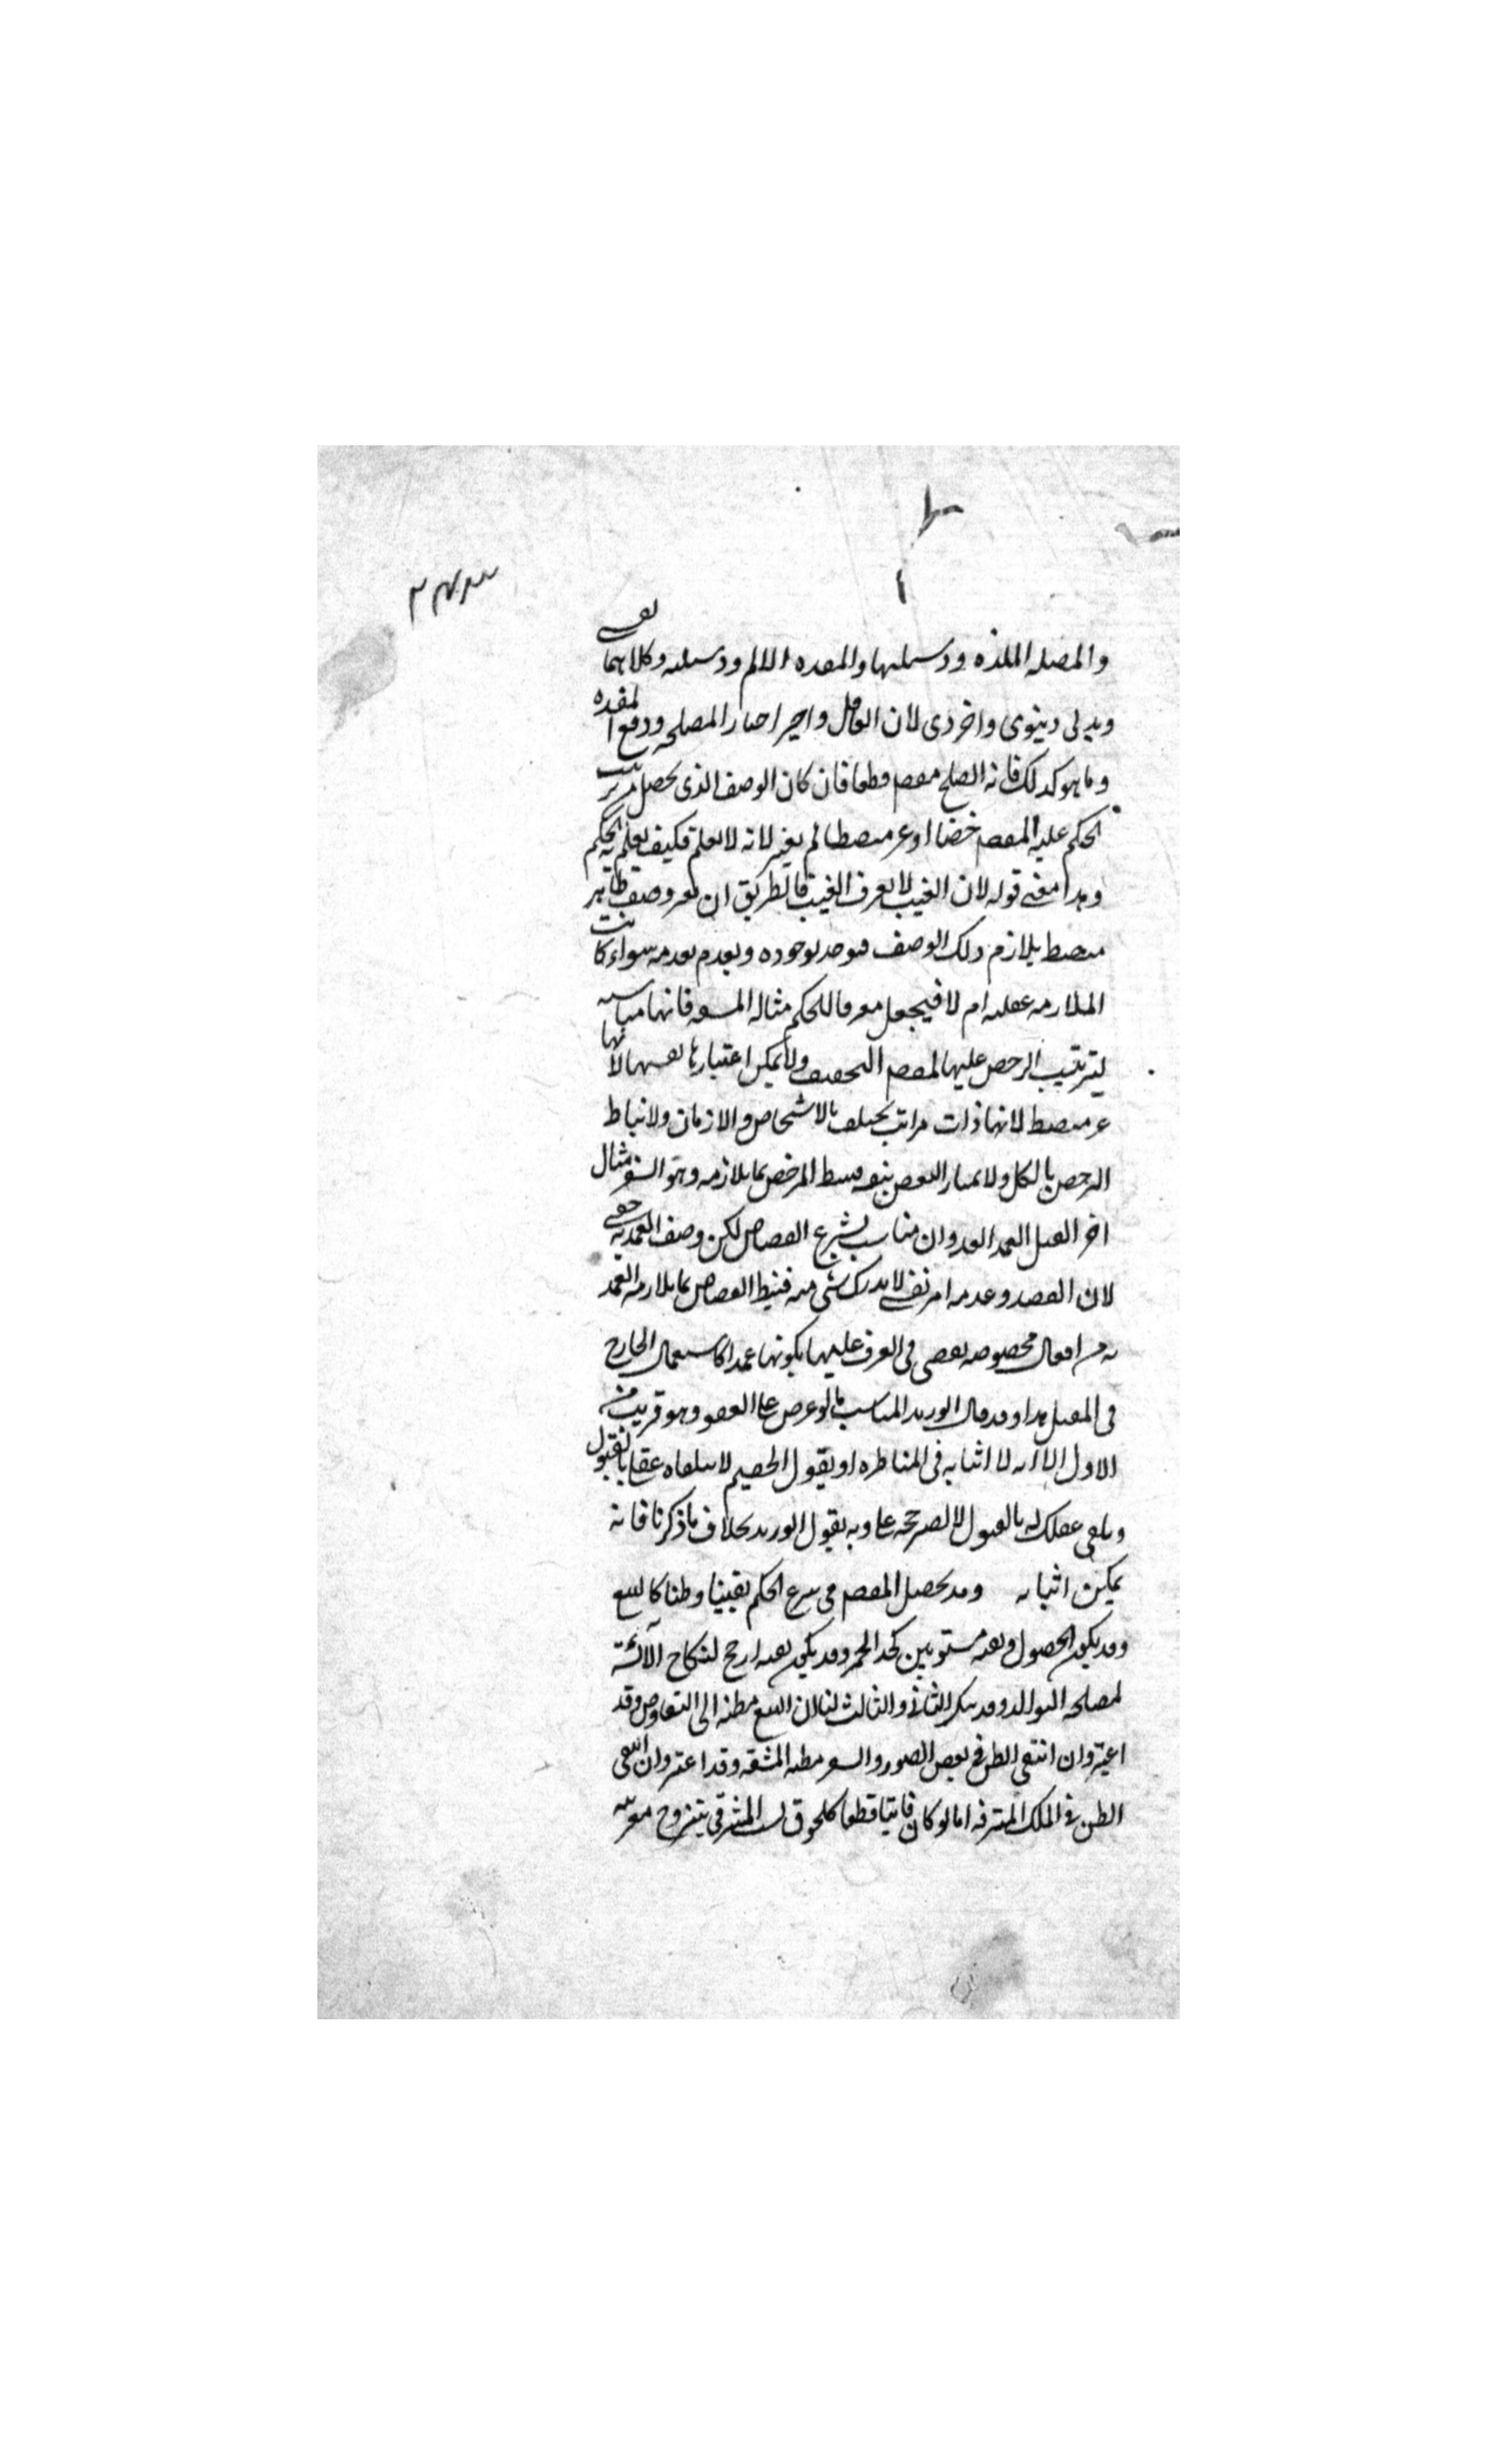 والمصلحه اللذه ووسيلتها والمفسده الالم ووسيلته وكلاهما نفسى
وبدنى دنيوى واخروى لان العاقل اذا خير اختار المصلحه ودفع المفسده
وما هو كذلك فانه يصلح مقصودا قطعا فان كان الوصف الذى يحصل من ترتيب
الحكم عليه المقصود خفيا او غير منضبط لم يعتبر لانه لا يعلم فكيف يعلم به الحكم
وهذا معنى قوله لان الغيب لا يعرف الغيب فالطريق ان يعتبر وصف ظاهر
منضبط يلازم ذلك الوصف فيوجد بوجوده ويعدم بعدمه سواء كانت
الملازمه عقليه ام لا فيجعل معرفا للحكم مثاله المشقه فانها مناسبه
لترتيب الترخص عليها لمقصود التخفيف ولا يمكن اعتبارها بنفسها لانها
غير منضبطه لانها ذات مراتب تختلف بالاشخاص والازمان ولا يناط
الترخص بالكل ولا يمتاز البعض بنفسه فنيط الترخص بما يلازمه وهو السفر مثال
اخر القتل العمد العدوان مناسب لشرع القصاص لكن وصف العمديه خفى
لان القصد وعدمه امر نفسى لا يدرك شى منه فنيط القصاص بما يلازم العمد
يه من افعال مخصوصه يقضى فى العرف عليها بكونها عمدا كاستعمال الجارح
فى المقتل هذا وقد قال ابو زيد المناسب ما لو عرض على العقول وهو قريب من
الاول الا انه لا اثبات به فى المناظره اذ يقول الخصم لا يتلقاه عقلى بالقبول
وتلقى عقلك له بالقبول لا يصير حجه على وبه يقول ابو زيد بخلاف ما ذكرنا فانه
يمكن اثباته وقد يحصل المقصود من شرع الحكم يقينا وظنا كالبيع
وقد يكون الحصول ونفيه مستويين كحد الخمر وقد يكون نفيه ارجح لنكاح الآئسة
لمصلحه التوالد وقد ينكر الثانى والثالث لنا ان البيع مظنه الى التعاوض وقد
اعتبر وان انتفى الظن فى بعض الصور والسفر مظنه المشقه وقد اعتبر وان انتفى
الظن فى الملك المترفه اما لو كان فائتا قطعا كلحوق نسب المشرقى بتزوج مغربيه